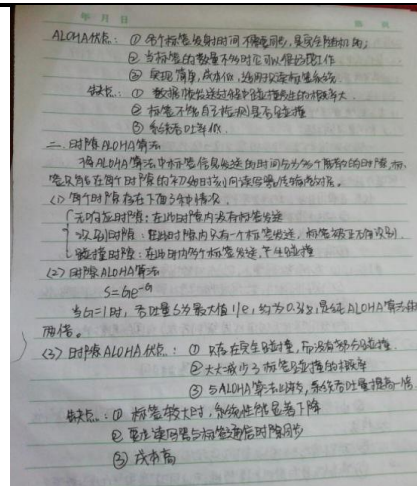 年 月 日
ALOHA优点：① 各个标签发射时间不需要同步，是完全随机的；
② 当标签的数量不多时它可以很好的工作
③ 实现简单，成本低，适用只读标签系统
缺点：① 数据帧发送过程中碰撞发生的概率大
② 标签不能自己检测是否碰撞
③ 系统吞吐率低.
二. 时隙ALOHA算法
将ALOHA算法中标签信息发送的时间分为多个离散的时隙,标
签只能在每个时隙的初始时刻向读写器传输
<1> 每个时隙存在下面3种情况.
无响应时隙：在此时隙内没有标签发送
识别时隙：在此时隙内只有一个标签发送，标签被正确识别.
碰撞时隙：在此时隙多个标签发送，产生碰撞
(2) 时隙ALOHA算法
S=Ge-G
当G=1时，吞吐量S为最大值1/e，约为0.368，是纯ALOHA算法的
两倍。
<3> 时隙ALOHA优点：① 只存在完全碰撞，而没有部分碰撞.
② 大大减少了标签碰撞的概率
③ 与ALOHA算法比较，系统吞吐量提高一倍
缺点：① 标签较大时，系统性能显著下降
② 要求读写器与标签通信时隙同步
③ 成本高